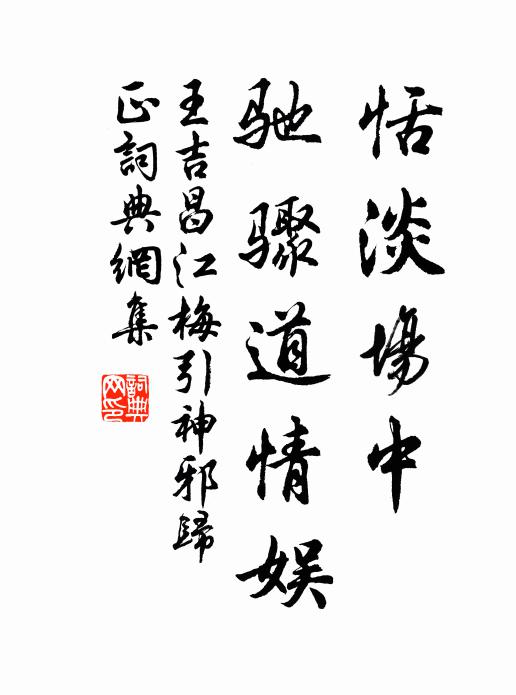 恬淡場中
驰骤道情娱
王吉昌江梅引神邪歸
正詞典網集
詞典網印